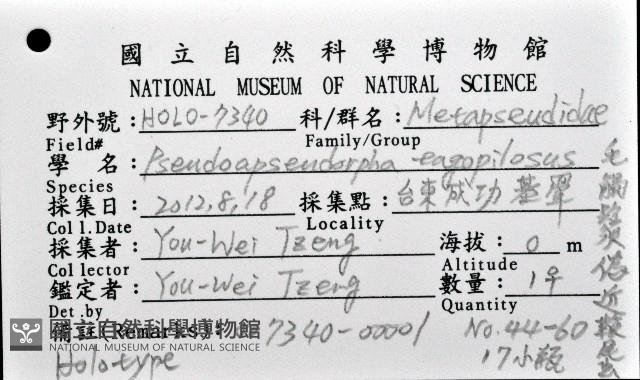 國立自然科學博物館
NATIONAL MUSEUM OF NATURAL SCIENCE
野外號：HOLO-7340 科/群名：Metapseudidae
Field# Family/Group
學 名：Pseudoapseudorpha eagopilosus
Species
採集日：2012,8,18 採集點：台東成功基翬
Coll.Date Locality
採集者：You-Wei Tzeng 海拔：0 m
Collector Altitude
鑑定者：You-Wei Tzeng 數量：1♀
Det.by Quantity
備註(Remarks)：7340-00001 No.44-60
國立自然科學博物館
NATIONAL MUSEUM OF NATURAL SCIENCE
Holotype 17小瓶
毛